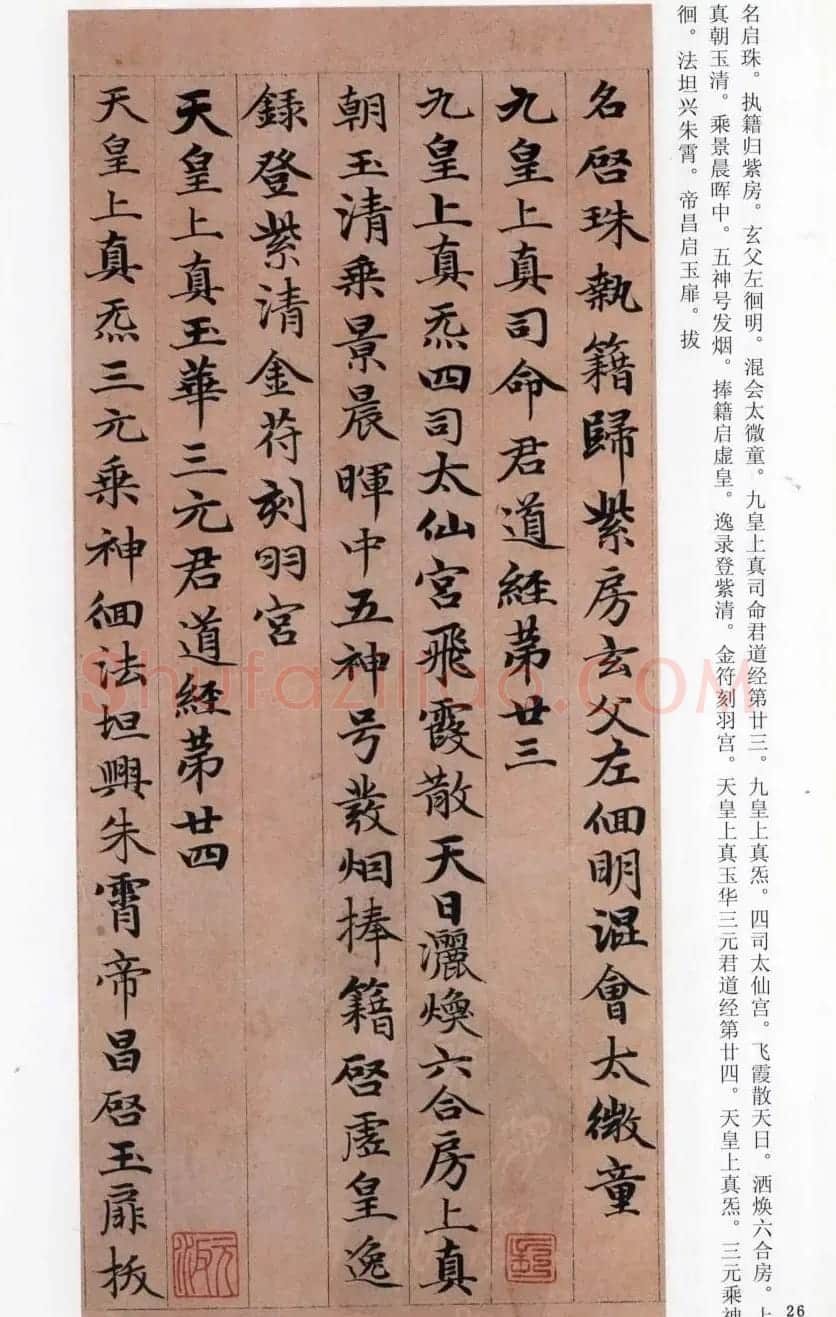 名启珠。执籍归紫房。玄父左徊明。混会太微童。九皇上真司命君道经第廿三。九皇上真炁。四司太仙宫。飞霞散天日。洒焕六合房。上
真朝玉清。乘景晨晖中。五神号发烟。捧籍启虚皇。逸录登紫清。金符刻羽宫。天皇上真玉华三元君道经第廿四。天皇上真炁。三元乘神
徊。法坦兴朱霄。帝昌启玉扉。拔
名啓珠執籍歸紫房玄父左佪明混會太微童
九皇上真司命君道經第廿三
九皇上真炁四司太仙宮飛霞散天日灑煥六合房上真
朝玉清乘景晨暉中五神号發烟捧籍啓虛皇逸
録登紫清金符刻羽宮
天皇上真玉華三元君道經第廿四
天皇上真炁三元乘神佪法坦興朱霄帝昌啓玉扉拔
Shufaziliao.COM
26